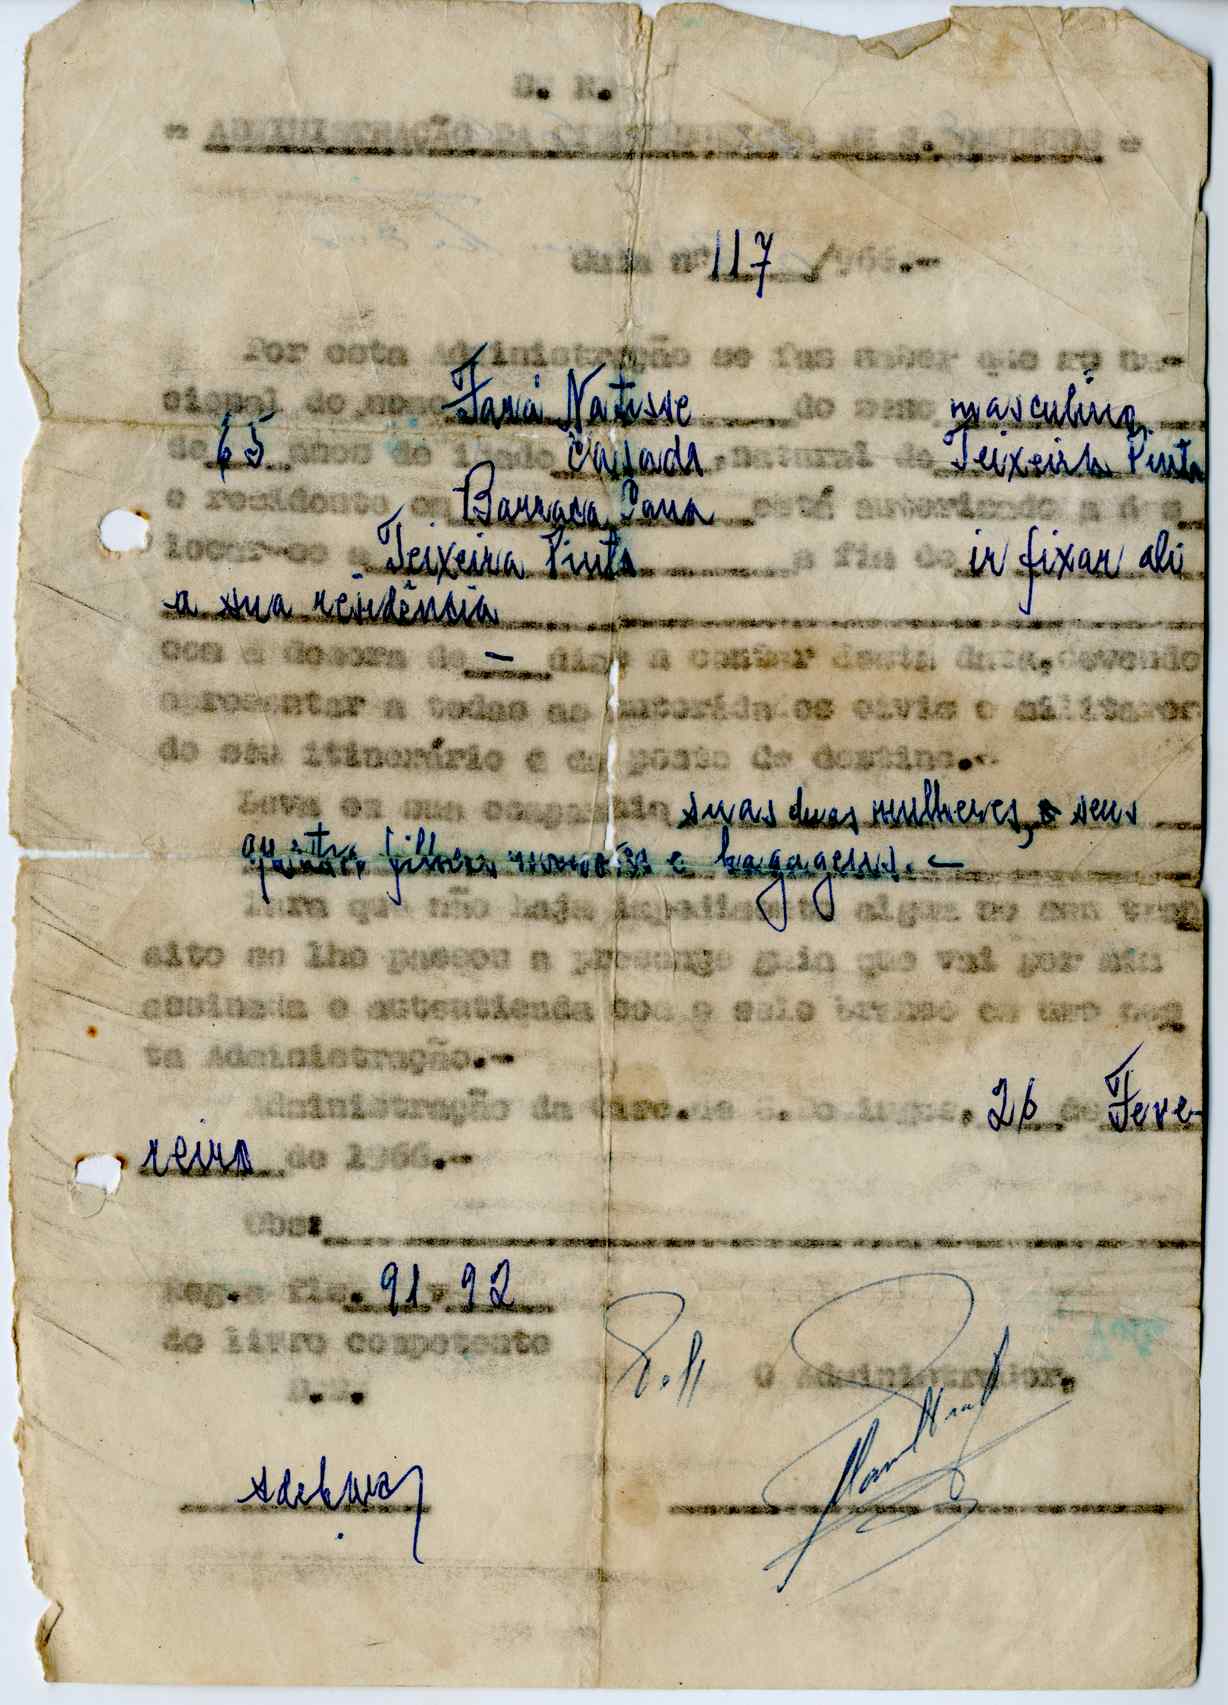 S. R.
- ADMINISTRAÇÃO DA CIRCUNSCRIÇÃO DE S. DOMINGOS -
Guia nº 117 /966.-
Por esta Administração se faz saber que ao na-
cional de nome Natisse do sexo masculino,
de 65 anos de idade casado, natural de Teixeira Pinto
e residente em Barraca está autorizado a des
locar-se a Teixeira Pinto a fim de ir fixar ali
a sua residência
com a demora de - dias a contar desta data, devendo
apresentar a todas as autoridades civis e militares
do seu itinerário e do posto de destino.-
Leva em sua companhia suas duas mulheres, e seus
quatro filhos menores e bagagens. -
Para que não haja impedimento algum no seu tran
sito se lhe passou a presente guia que vai por mim
assinada e autenticada com o selo branco em uso nes
ta Administração.-
Administração da Circ. de S. Domingos, 26 de Feve-
reiro de 1966.-
Obs:
Reg. a fls. 91 v 92
do livro competente
O Administrador,